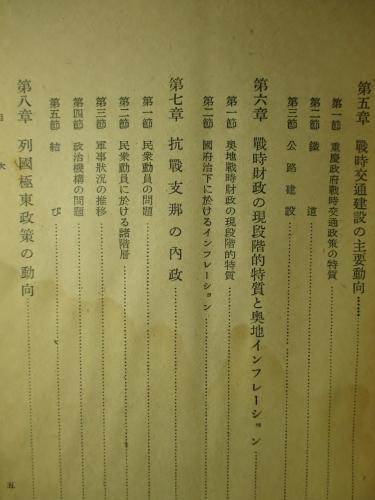 第五章　戰時交通建設の主要動向……
第一節　重慶政府戰時交通政策の特質
第二節　鐵道
第三節　公路建設
第六章　戰時財政の現段階的特質と奧地インフレーション
第一節　奧地戰時財政の現段階的特質
第二節　國府治下に於けるインフレーション
第七章　抗戰支那の內政
第一節　民衆動員の問題
第二節　民衆動員に於ける諸階層
第三節　軍事狀況の推移
第四節　政治機構の問題
第五節　結び
第八章　列國極東政策の動向
目次
五